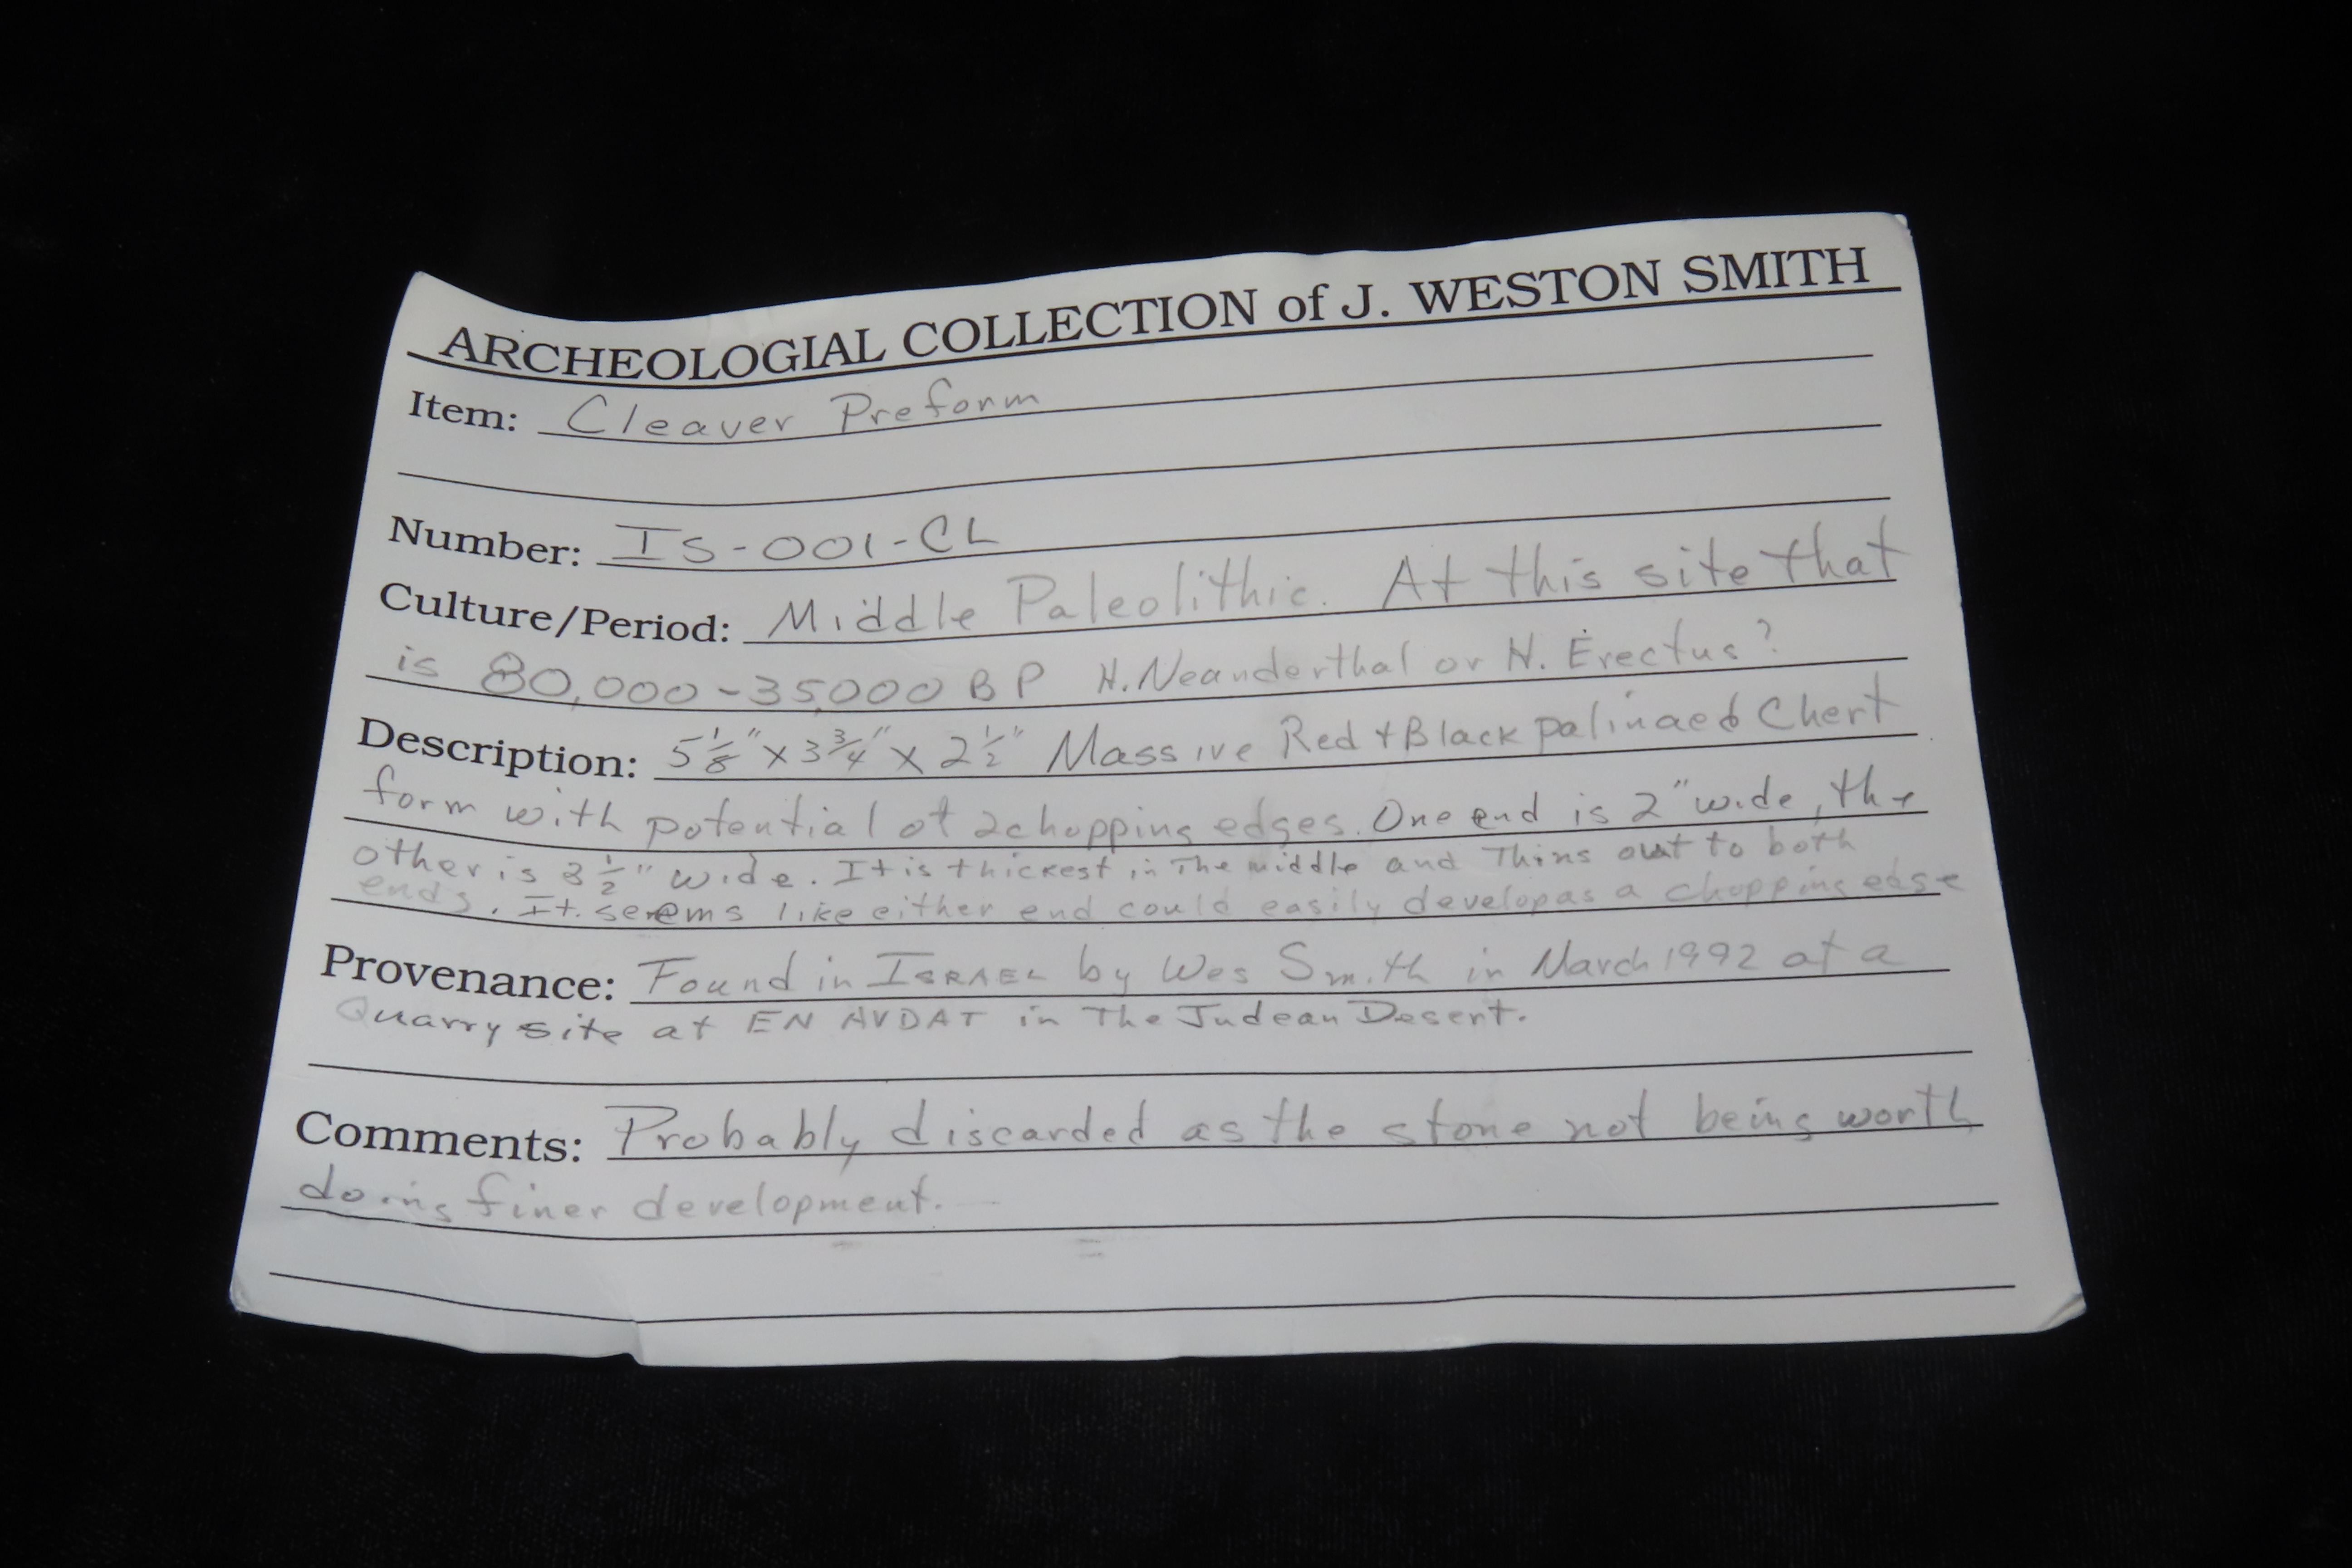 ARCHEOLOGIAL COLLECTION of J. WESTON SMITH
Item: Cleaver Preform
Number: IS-001-CL
Culture/Period: Middle Paleolithic. At this site that
is 80,000-35,000 BP H. Neanderthal or H. Erectus?
Description: 5 1/8" x 3 3/4" x 2 1/2" Massive Red + Black palinaed Chert
form with potential of 2 chopping edges. One end is 2" wide, the
other is 3 1/2" wide. It is thickest in The middle and Thins out to both
ends. It seems like either end could easily develop as a chopping edge
Provenance: Found in ISRAEL by Wes Smith in March 1992 at a
Quarry site at EN AVDAT in The Judean Desert.
Comments: Probably discarded as the stone not being worth
doing finer development.